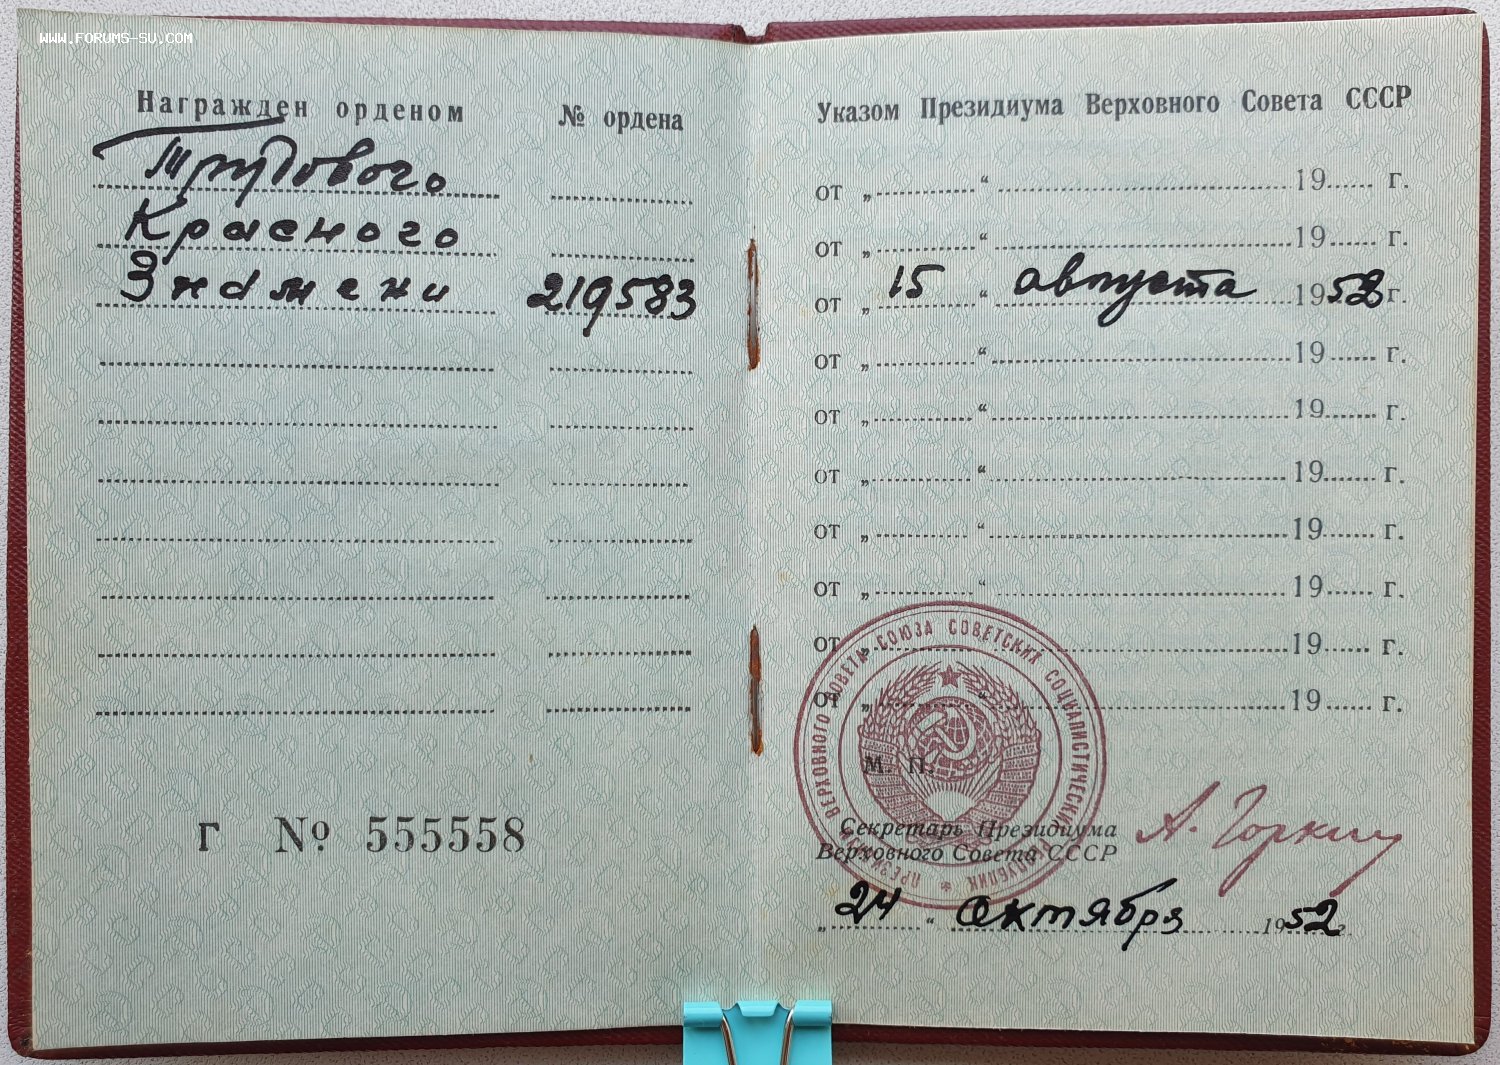 WWW.FORUMS-SU.COM
Награжден орденом № ордена
Трудового
Красного
Знамени 219583
Г № 555558
Указом Президиума Верховного Совета СССР
от „ “ 19 г.
от „ “ 19 г.
от „ 15 “ августа 1952 г.
от „ “ 19 г.
от „ “ 19 г.
от „ “ 19 г.
от „ “ 19 г.
от „ “ 19 г.
от „ “ 19 г.
от „ “ 19 г.
ПРЕЗИДИУМ ВЕРХОВНОГО СОВЕТА СОЮЗА СОВЕТСКИХ СОЦИАЛИСТИЧЕСКИХ РЕСПУБЛИК
М. П.
Секретарь Президиума
Верховного Совета СССР
А. Горкин
„ 24 “ октября 1952 г.